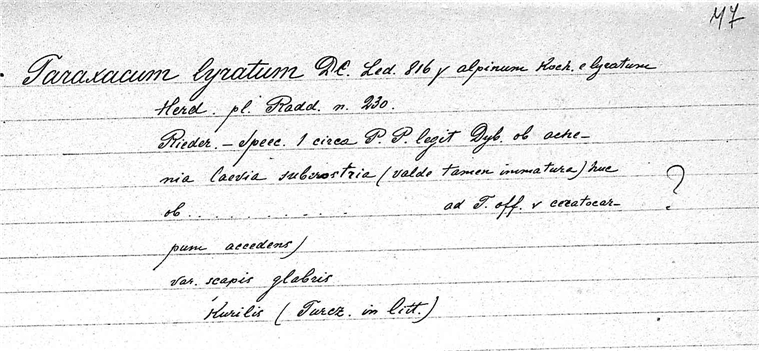 M7
Taraxacum lyratum DC. Led. 816 γ alpinum Koch. e lyratum
Herd. pl. Radd. n. 230.
Rieder. – Spec. 1 circa P. P. legit Dyb. ob ache-
nia laevia subrostria (valde tamen immatura) huc
ob . . . . . . . . . . . ad T. off. v ceratocar- ?
pum accedens)
var. scapis glabris
Kurilis (Turcz. in litt.)